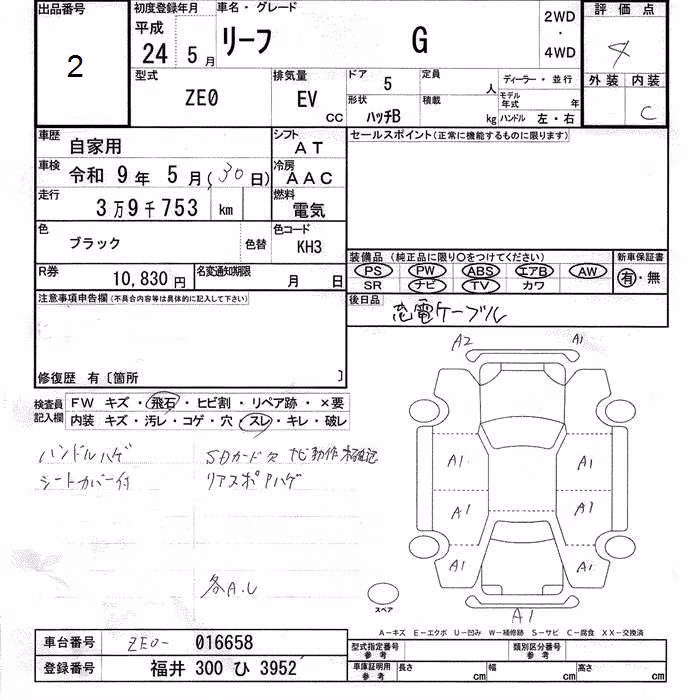 出品番号 初度登録年月 車名・グレード 評価点
2 平成 24 5月 リーフ G 2WD・4WD 4
型式 排気量 ドア 定員 ディーラー・並行 外装 内装
ZE0 EV CC 5 人 モデル年式 年 C
形状 ハッチB 積載 kg ハンドル 左・右
車歴 自家用 シフト AT セールスポイント(正常に機能するものに限ります)
車検 令和 9年 5月(30日) 冷房 AAC
走行 3万9千753 km 燃料 電気
色 ブラック 色替 色コード KH3
装備品(純正品に限り○をつけてください) 新車保証書
PS PW ABS エアB AW 有・無
SR ナビ TV カワ
R券 10,830円 名変通知期限 月 日
後日品 充電ケーブル
注意事項申告欄(不具合内容等は具体的に記入して下さい)
修復歴 有〔箇所 〕
検査員記入欄 FW キズ・飛石・ヒビ割・リペア跡・×要
内装 キズ・汚レ・コゲ・穴・スレ・キレ・破レ
ハンドルハゲ SDカード欠 ナビ動作未確認
シートカバー付 リアスポAハゲ
各A.U
A2 A1
A1 A1
A1 A1
A1 A1
スペア A1
A-キズ E-エクボ U-凹み W-補修跡 S-サビ C-腐食 XX-交換済
車台番号 ZE0- 016658
登録番号 福井 300 ひ 3952
型式指定番号 参考 類別区分番号 参考
車庫証明用 参考 長さ cm 幅 cm 高さ cm